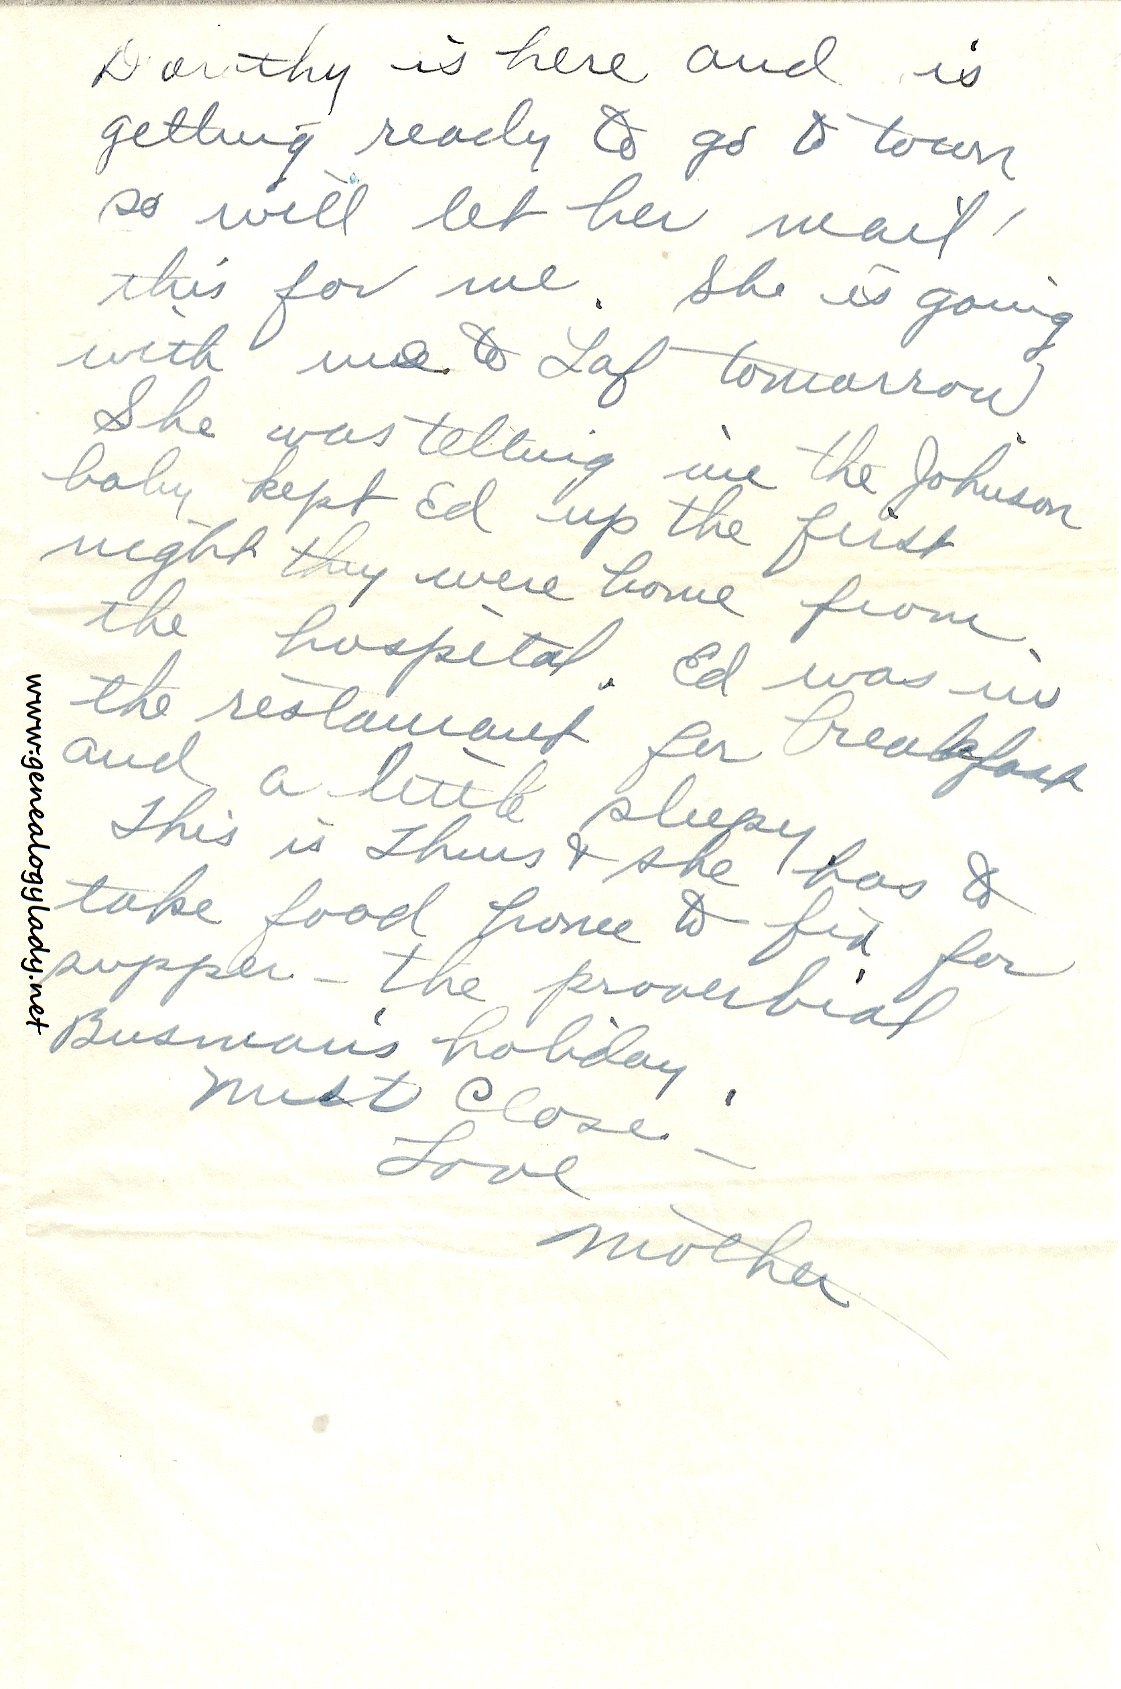 Dorothy is here and is
getting ready to go to town
so will let her mail
this for me. She is going
with me to Laf tomorrow
She was telling me the Johnson
baby kept Ed up the first
night they were home from
the hospital. Ed was in
the restaurant for breakfast
and a little sleepy
This is Thurs & she has to
take food home to fix for
supper - the proverbial
Busman's holiday.
Must Close -
Love
Mother
www.genealogylady.net